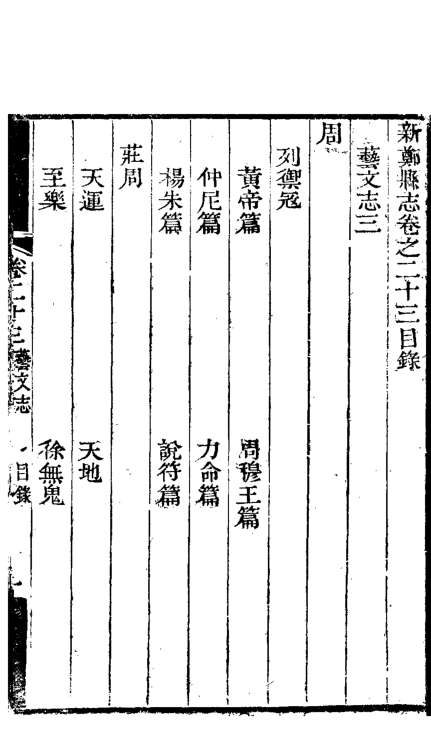 新鄭縣志卷之二十三目錄
藝文志三
周
列禦寇
黃帝篇　周穆王篇
仲尼篇　力命篇
楊朱篇　說符篇
莊周
天運　天地
至樂　徐無鬼
卷二十三藝文志　目錄　一